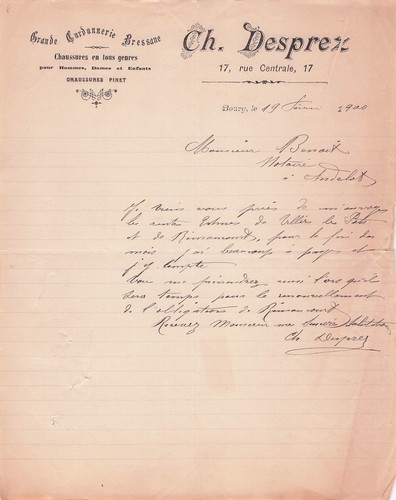 Grande Cordonnerie Bressane
Chaussures en tous genres
pour Hommes, Dames et Enfants
CHAUSSURES PINET
Ch. Desprez
17, rue Centrale, 17
Bourg, le 19 février 1900
Monsieur Benoit
Notaire
à Andelot
Je viens vous prier de m'envoyer
les rentes de Villers le
et de Rimaucourt, pour la fin du
mois j'ai beaucoup à payer et
j'y compte
Vous me aussi lors qu'il
sera temps pour le renouvellement
de l'obligations de Rimaucourt
Recevez Monsieur mes Sincères Salutations
Ch Desprez